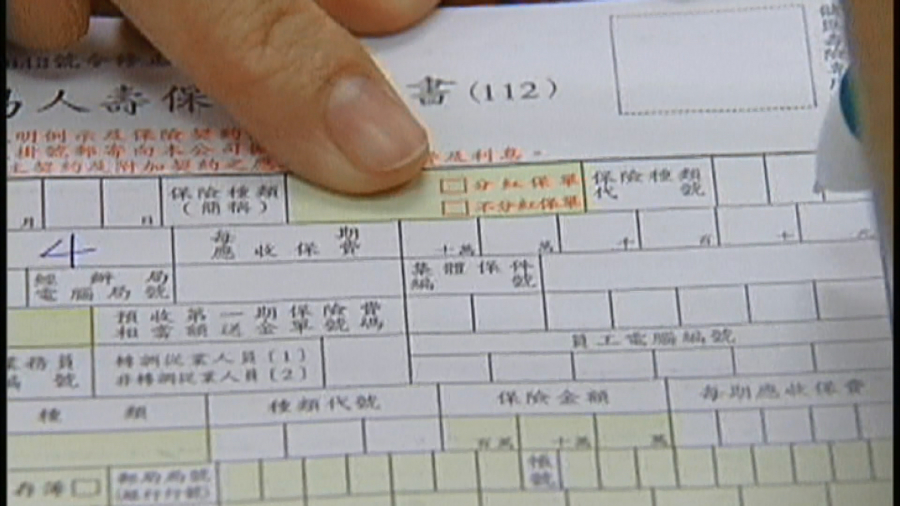 為人壽保 書(112)
及利息。
掛號郵寄向本公司
主契約及附加契約之
保險種類
(簡稱)
分紅保單
不分紅保單
保險種類
代 號
月
日
4
每 期
應收保費
十萬
萬
千
百
十
元
經辦局
電腦局號
集體保件
編 號
預收第一期保險費
相當額送金單號碼
員工電腦編號
業務員
編 號
轉調從業人員(1)
非轉調從業人員(2)
種 類
種類代號
保險金額
每期應收保費
百萬
十萬
萬
存簿
郵局局號
(銀行行號)
帳
號